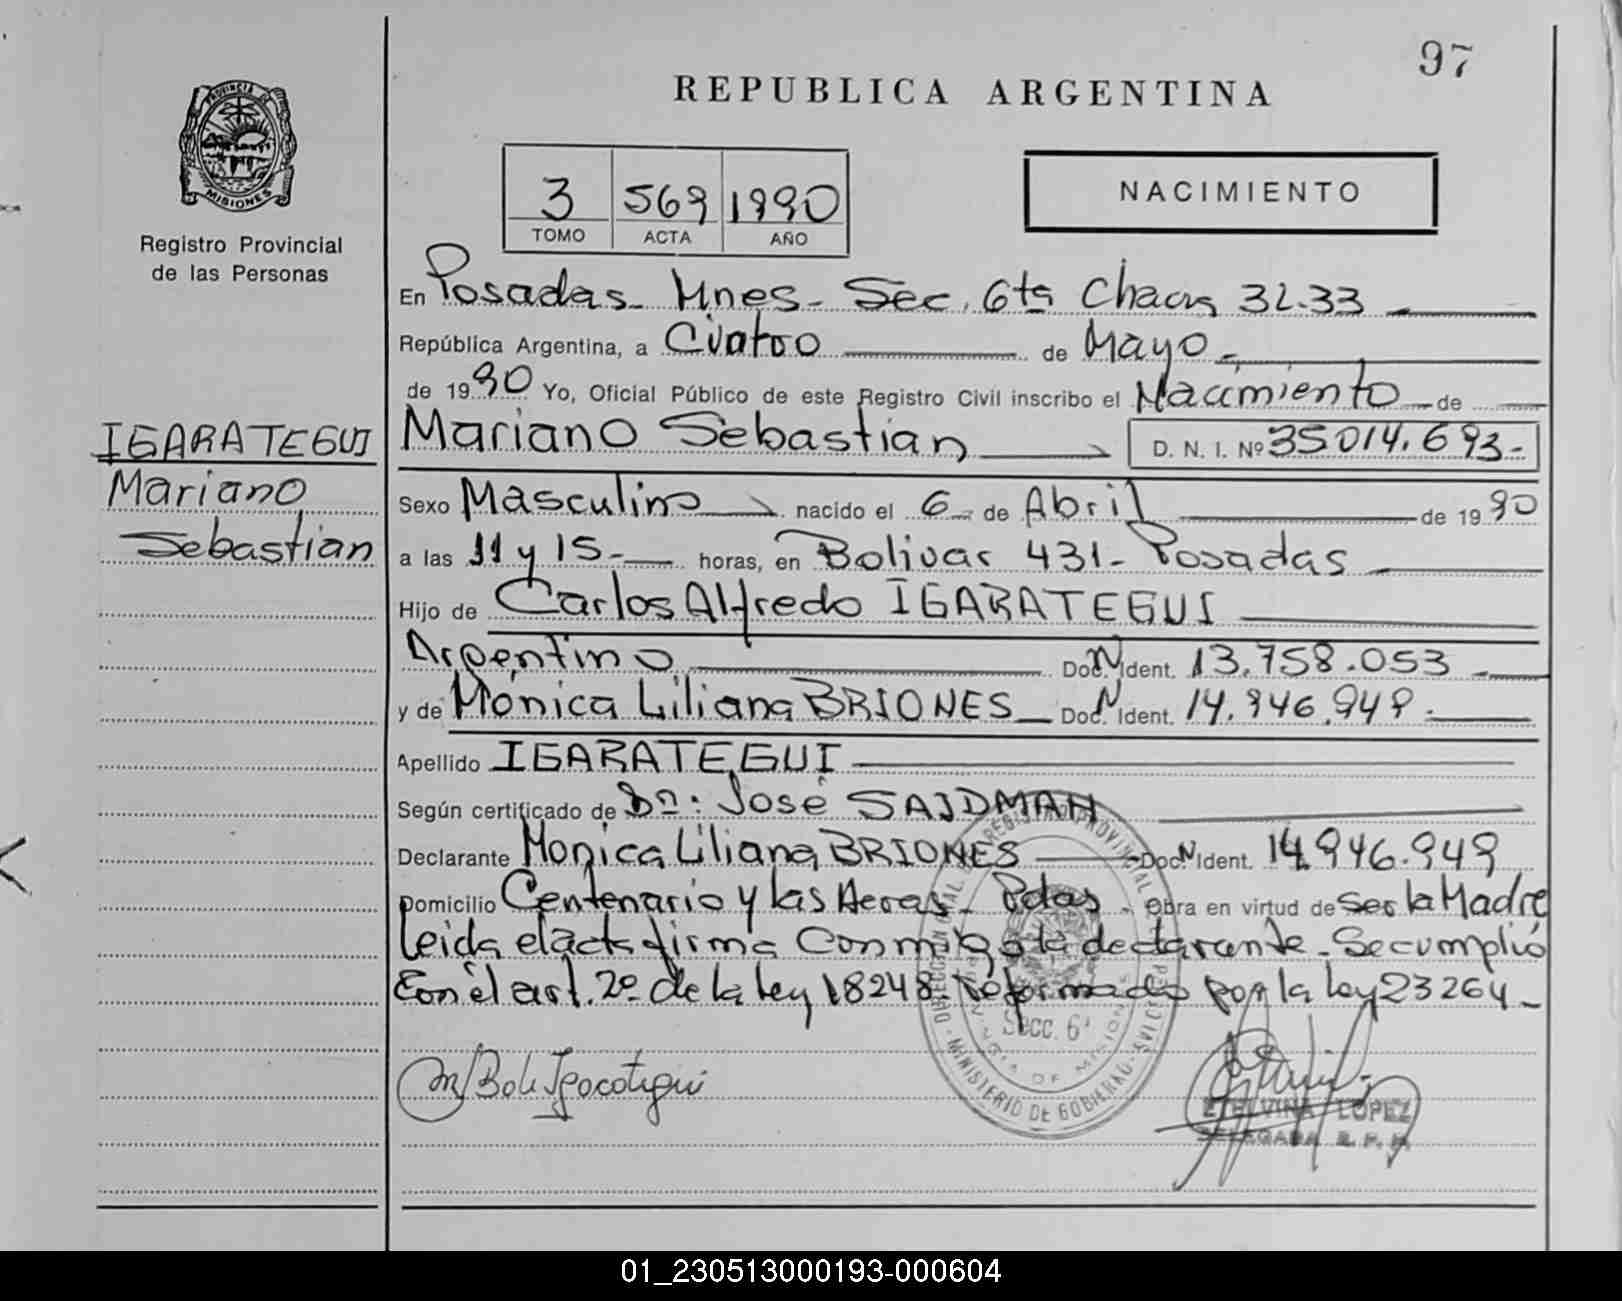 97
REPUBLICA ARGENTINA
PROVINCIA DE
MISIONES
Registro Provincial
de las Personas
3 569 1990
TOMO ACTA AÑO
NACIMIENTO
En Posadas - Mnes - Sec. 6ta Chacra 32-33
República Argentina, a Cuatro de Mayo -
de 1990 Yo, Oficial Público de este Registro Civil inscribo el Nacimiento de
IGARATEGUI
Mariano
Sebastian
Mariano Sebastian D. N. I. Nº 35014.693-
Sexo Masculino nacido el 6 de Abril de 1990
a las 11 y 15 - horas, en Bolivar 431 - Posadas
Hijo de Carlos Alfredo IGARATEGUI
Argentino Doc. N Ident. 13.758.053
y de Mónica Liliana BRIONES Doc. N Ident. 14.946.949 -
Apellido IGARATEGUI
Según certificado de Dn: José SAJDMAN
Declarante Monica Liliana BRIONES Doc. N Ident. 14.946.949
Domicilio Centenario y las Heras - Pdas - obra en virtud de Ser la Madre
Leida el acta firma Conmigo la declarante - Se cumplió
Con el art. 2º de la Ley 18248, reformado por la Ley 23264 -
Secc. 6ª
MINISTERIO DE GOBIERNO
PROVINCIA DE MISIONES
ETELVINA LOPEZ
DELEGADA R. P. P.
01_230513000193-000604